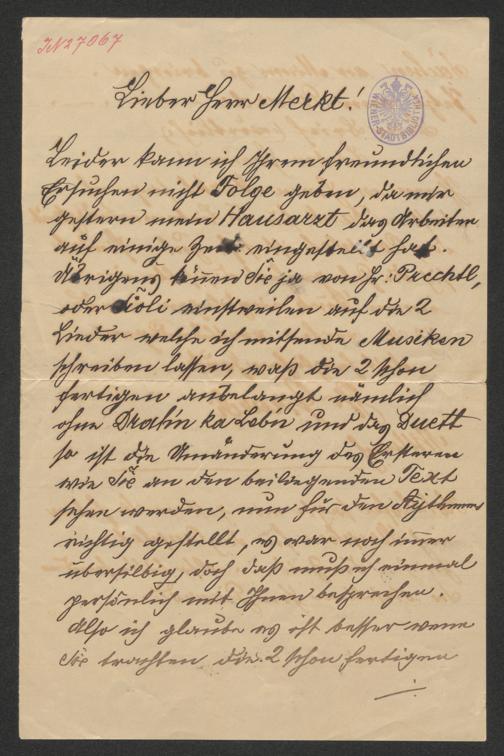 IN27067
WIENER STADTBIBLIOTHEK
Lieber Herr Merkt!
Leider kann ich Ihrem freundlichen
Ersuchen nicht Folge geben, da mir
gestern mein Hausarzt das Arbeiten
auf einige Zeit eingestellt hat.
Übrigens können Sie ja von Hr: Prechtl,
oder Tóli einstweilen auf die 2
Lieder welche ich mitsende Musiken
schreiben lassen, waß die 2 schon
fertigen anbelangt nämlich
ohne Dralin ka Lebn und das Duett
so ist die Umänderung des Ersteren
wie Sie an den beiliegenden Text
sehen werden, nun für den Rythmus
richtig gestellt, es war noch immer
übersilbig, doch daß muß ich einmal
persönlich mit Ihnen besprechen.
Also ich glaube es ist besser wenn
Sie trachten die 2 schon fertigen